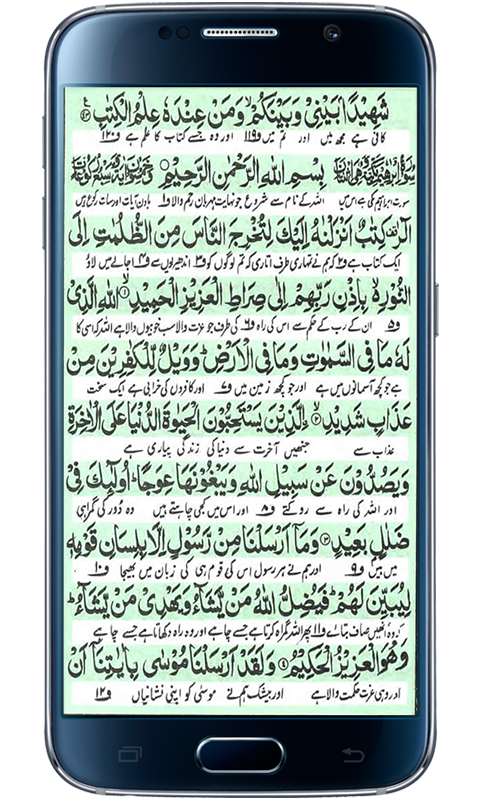 شَهِيْدًۢا بَيْنِيْ وَبَيْنَكُمْ ۙ وَمَنْ عِنْدَهٗ عِلْمُ الْكِتٰبِ
کافی ہے مجھ میں اور تم میں و۱۱۹ اور وہ جسے کتاب کا علم ہے و۱۲۰
بِسْمِ اللهِ الرَّحْمٰنِ الرَّحِيْمِ
سورت ابراہیم مکی ہے اس میں اللہ کے نام سے شروع جو نہایت مہربان رحم والا و۱ باون آیات اور سات رکوع ہیں
الٓرٰ ۫ كِتٰبٌ اَنْزَلْنٰهُ اِلَيْكَ لِتُخْرِجَ النَّاسَ مِنَ الظُّلُمٰتِ اِلَى
ایک کتاب ہے و۲ کہ ہم نے تمہاری طرف اتاری کہ تم لوگوں کو و۳ اندھیروں سے و۴ اجالے میں لاؤ
النُّوْرِ ۙ بِاِذْنِ رَبِّهِمْ اِلٰى صِرَاطِ الْعَزِيْزِ الْحَمِيْدِ ۙ اللهِ الَّذِيْ
و۵ ان کے رب کے حکم سے اس کی راہ و۶ کی طرف جو عزت والا سب خوبیوں والا ہے اللہ کہ اسی کا
لَهٗ مَا فِي السَّمٰوٰتِ وَمَا فِي الْاَرْضِ ؕ وَوَيْلٌ لِّلْكٰفِرِيْنَ مِنْ
ہے جو کچھ آسمانوں میں ہے اور جو کچھ زمین میں و۷ اور کافروں کی خرابی ہے ایک سخت
عَذَابٍ شَدِيْدِ ۙ الَّذِيْنَ يَسْتَحِبُّوْنَ الْحَيٰوةَ الدُّنْيَا عَلَى الْاٰخِرَةِ
عذاب سے جنھیں آخرت سے دنیا کی زندگی پیاری ہے
وَيَصُدُّوْنَ عَنْ سَبِيْلِ اللهِ وَيَبْغُوْنَهَا عِوَجًا ؕ اُولٰٓئِكَ فِيْ
اور اللہ کی راہ سے روکتے و۸ اور اس میں کجی چاہتے ہیں وہ دور کی گمراہی
ضَلٰلٍۭ بَعِيْدٍ وَمَاۤ اَرْسَلْنَا مِنْ رَّسُوْلٍ اِلَّا بِلِسَانِ قَوْمِهٖ
میں ہیں و۹ اور ہم نے ہر رسول اس کی قوم ہی کی زبان میں بھیجا و۱۰
لِيُبَيِّنَ لَهُمْ ؕ فَيُضِلُّ اللهُ مَنْ يَّشَآءُ وَيَهْدِيْ مَنْ يَّشَآءُ ؕ
کہ وہ انھیں صاف بتائے و۱۱ پھر اللہ گمراہ کرتا ہے جسے چاہے اور وہ راہ دکھاتا ہے جسے چاہے
وَهُوَ الْعَزِيْزُ الْحَكِيْمُ وَلَقَدْ اَرْسَلْنَا مُوْسٰى بِاٰيٰتِنَاۤ اَنْ
اور وہی عزت حکمت والا ہے اور بیشک ہم نے موسیٰ کو اپنی نشانیاں و۱۲